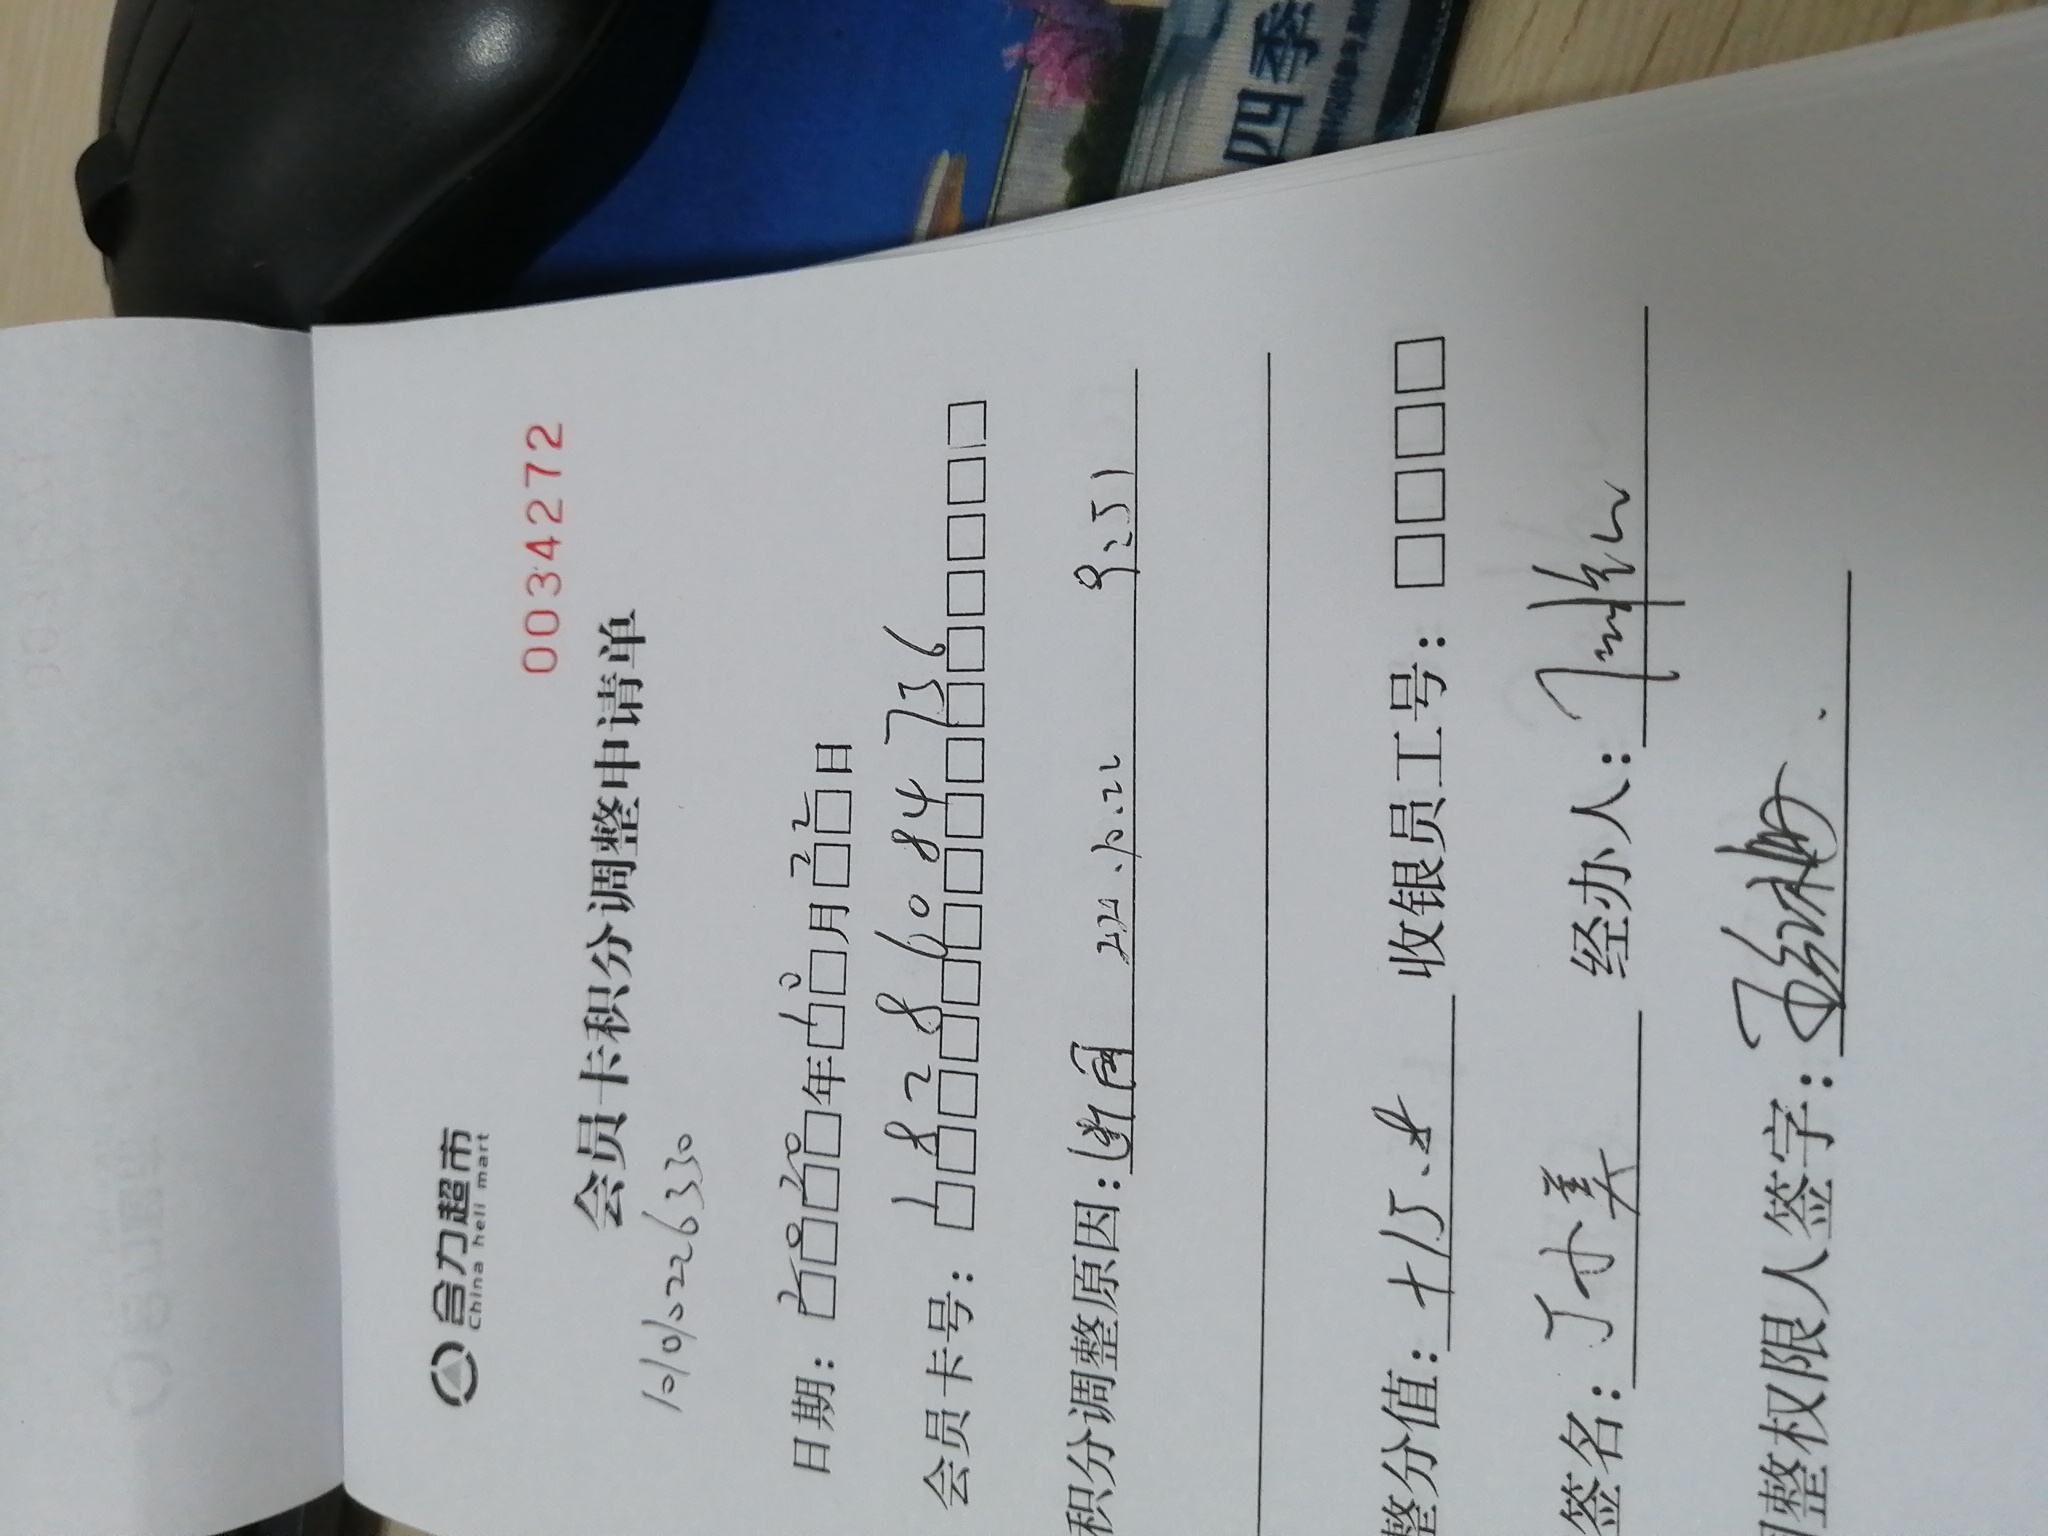 四季
合力超市
China heli mart
0034272
会员卡积分调整申请单
1010226330
日期：2020年10月22日
会员卡号：18286084736
积分调整原因：断网 2020.10.22 9:51
整分值：+15.8 收银员工号：
签名： 经办人：
整权限人签字：